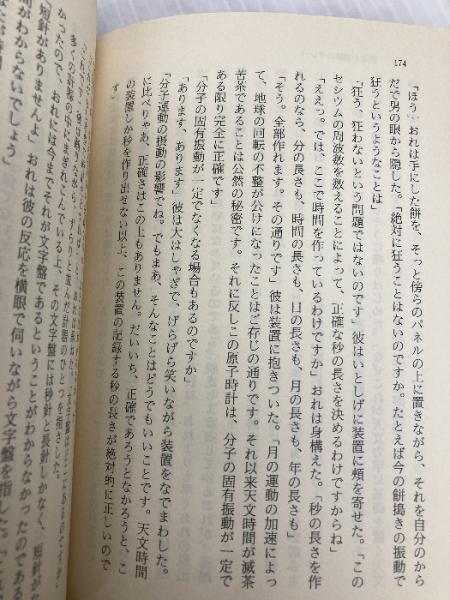 174
「ほう」おれは手にした餅を、そっと傍らのパネルの上に置きながら、それを自分のから
だで男の眼から隠した。「絶対に狂うことはないのですか。たとえば今の餅搗きの振動で
狂うというようなことは」
「狂う、狂わないという問題ではないのです」彼はいとしげに装置に頰を寄せた。「この
セシウムの周波数を数えることによって、正確な秒の長さを決めるわけですからね」
「ええっ。では、ここで時間を作っているわけですか」おれは身構えた。「秒の長さを作
れるのなら、分の長さも、時間の長さも、日の長さも、月の長さも、年の長さも」
「そう。全部作れます。その通りです」彼は装置に抱きついた。「月の運動の加速によっ
て、地球の回転の不整が公けになったことはご存じの通りです。それ以来天文時間が滅茶
苦茶であることは公然の秘密です。それに反しこの原子時計は、分子の固有振動が一定で
ある限り完全に正確です」
「分子の固有振動が一定でなくなる場合もあるのですか」
「あります、あります」彼は大はしゃぎで、げらげら笑いながら装置をなでまわした。
「分子運動の振動の影響でね。でもまあ、そんなことはどうでもいいことです。天文時間
に比べりゃあ、正確さはこの上もありません。だいいち、正確であろうとなかろうと、こ
の装置しか秒を作り出せない以上、この装置の記録する秒の長さが絶対的に正しいので
す」
ずらりと並んだ計器のひとつを指した。
多くの計器の中にまぎれこんでいる上、その文字盤には秒針と長針しかなく、短針が
かったので、おれには今までそれが文字盤であるということがわからなかったのである
「短針がありませんよ」おれは彼の反応を横眼で伺いながら文字盤を指した。
間がわからないでしょう」